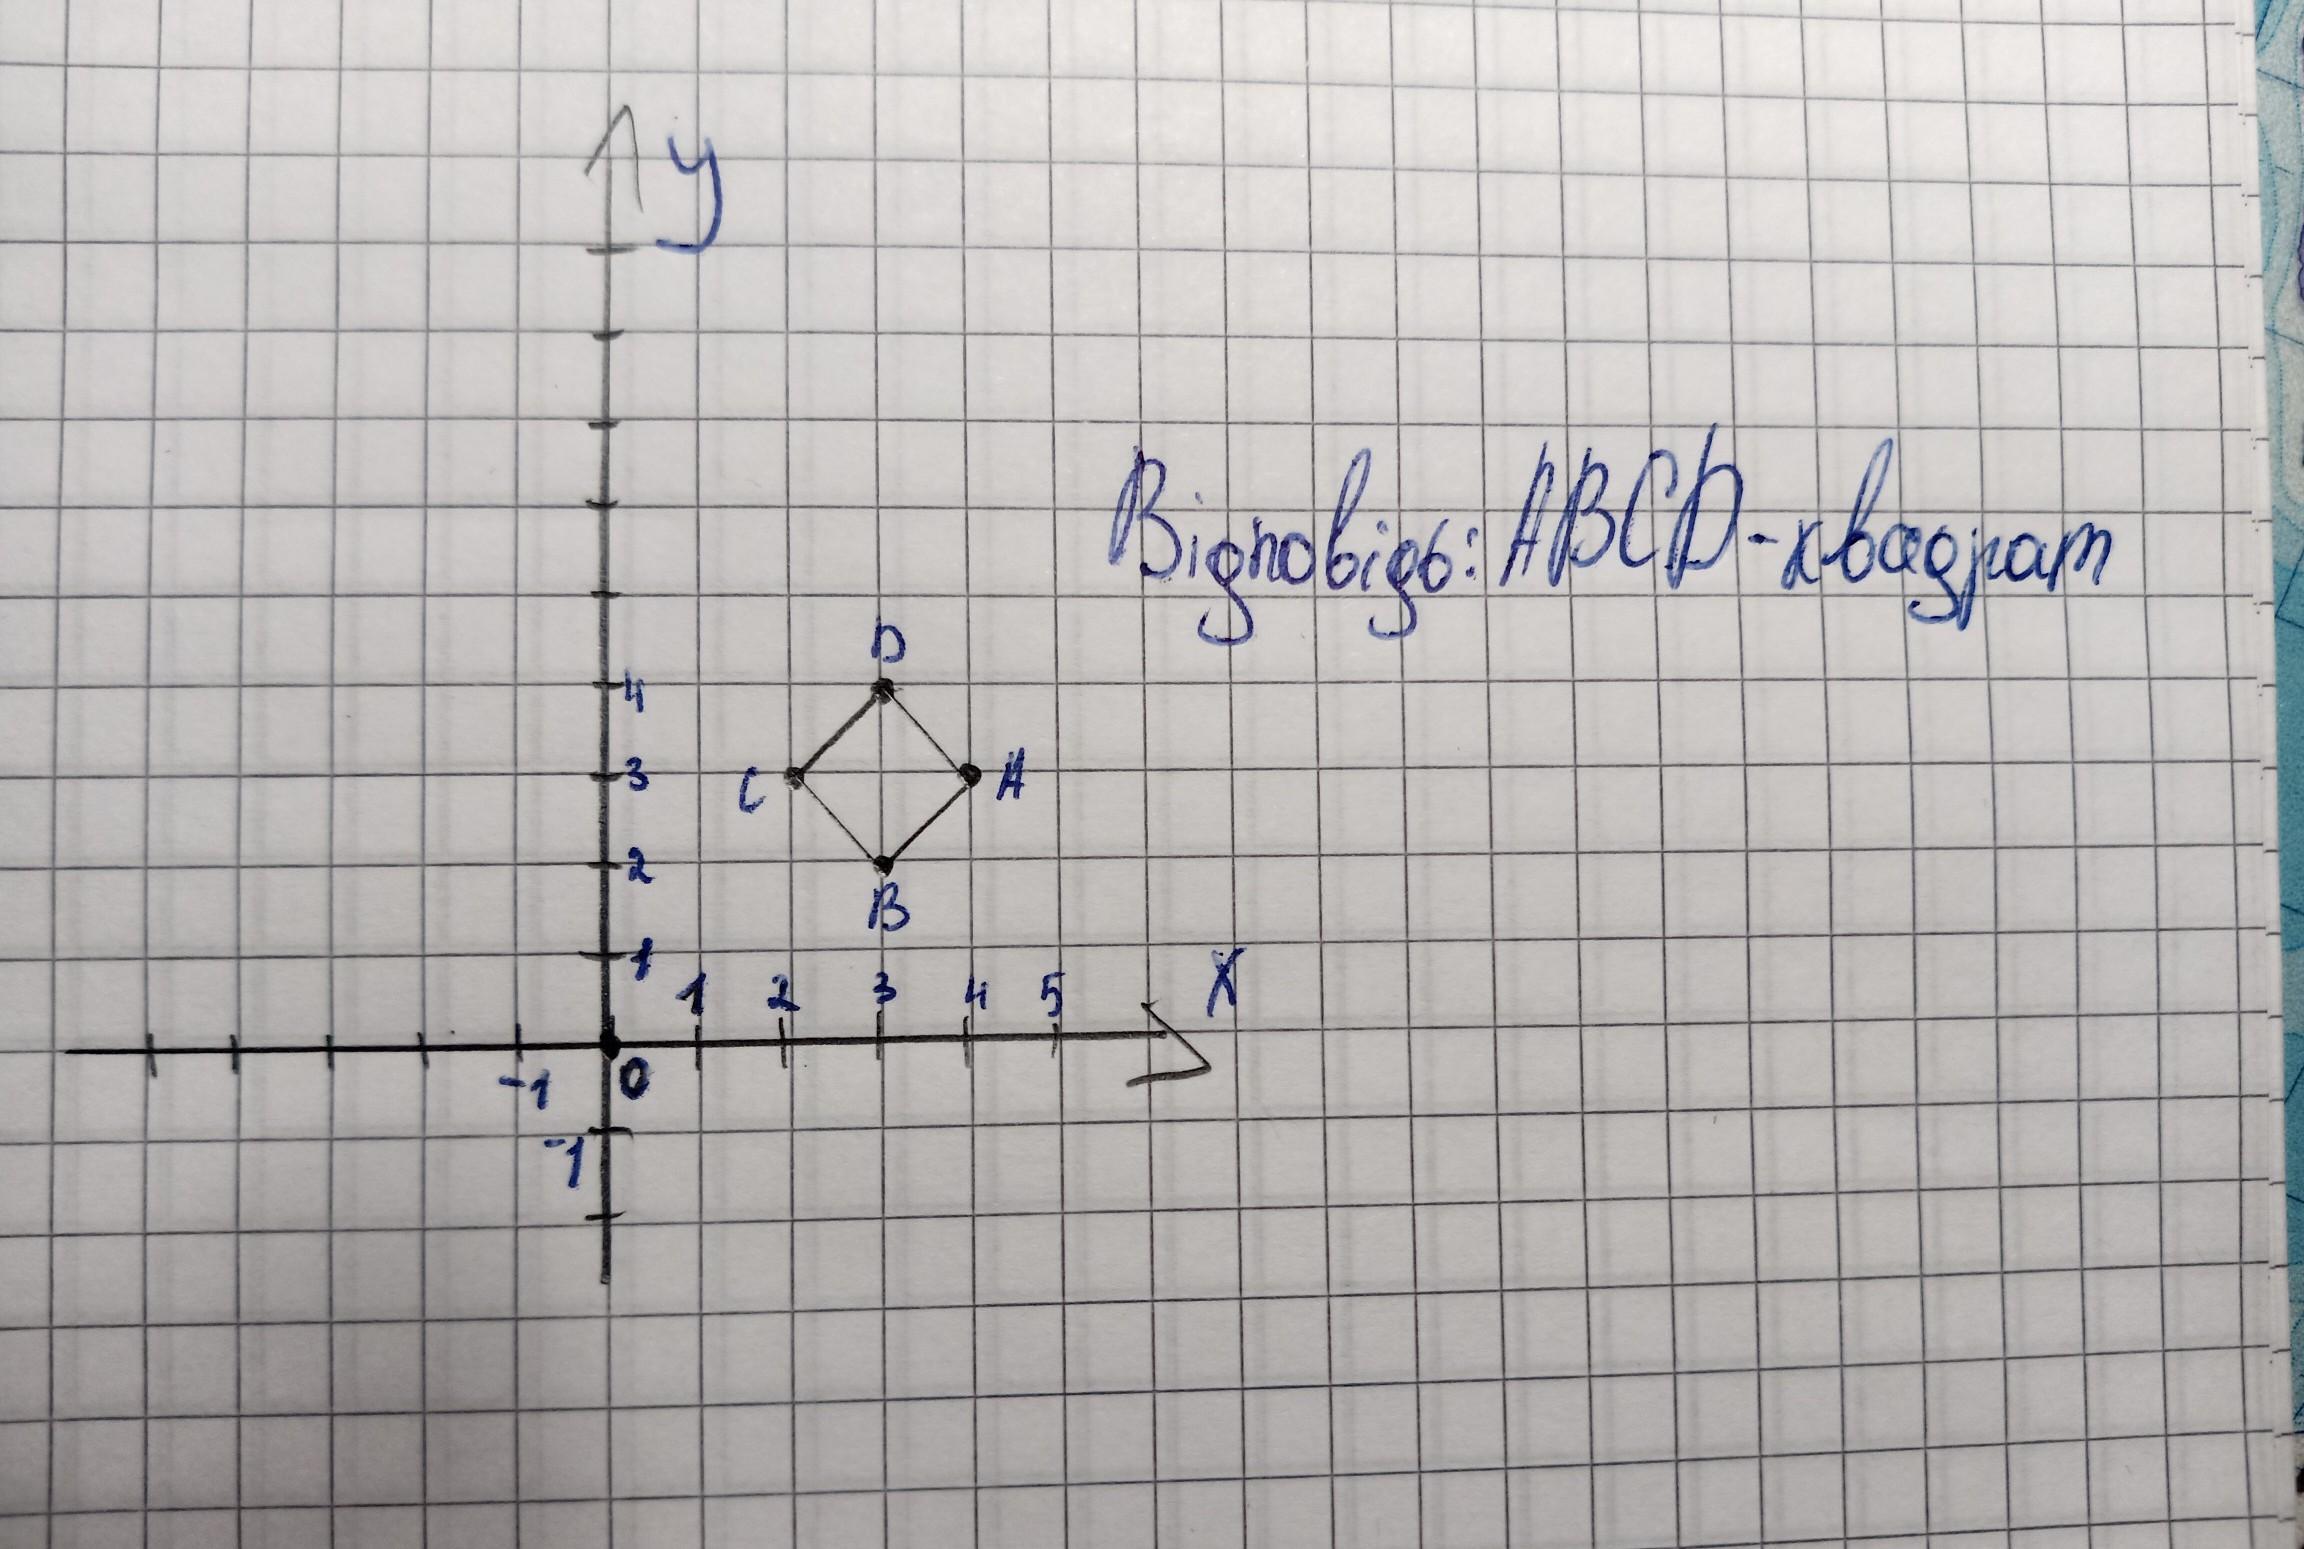 y
Відповідь: ABCD-квадрат
D
4
3 C A
2
B
1
1 2 3 4 5 X
-1 0
-1